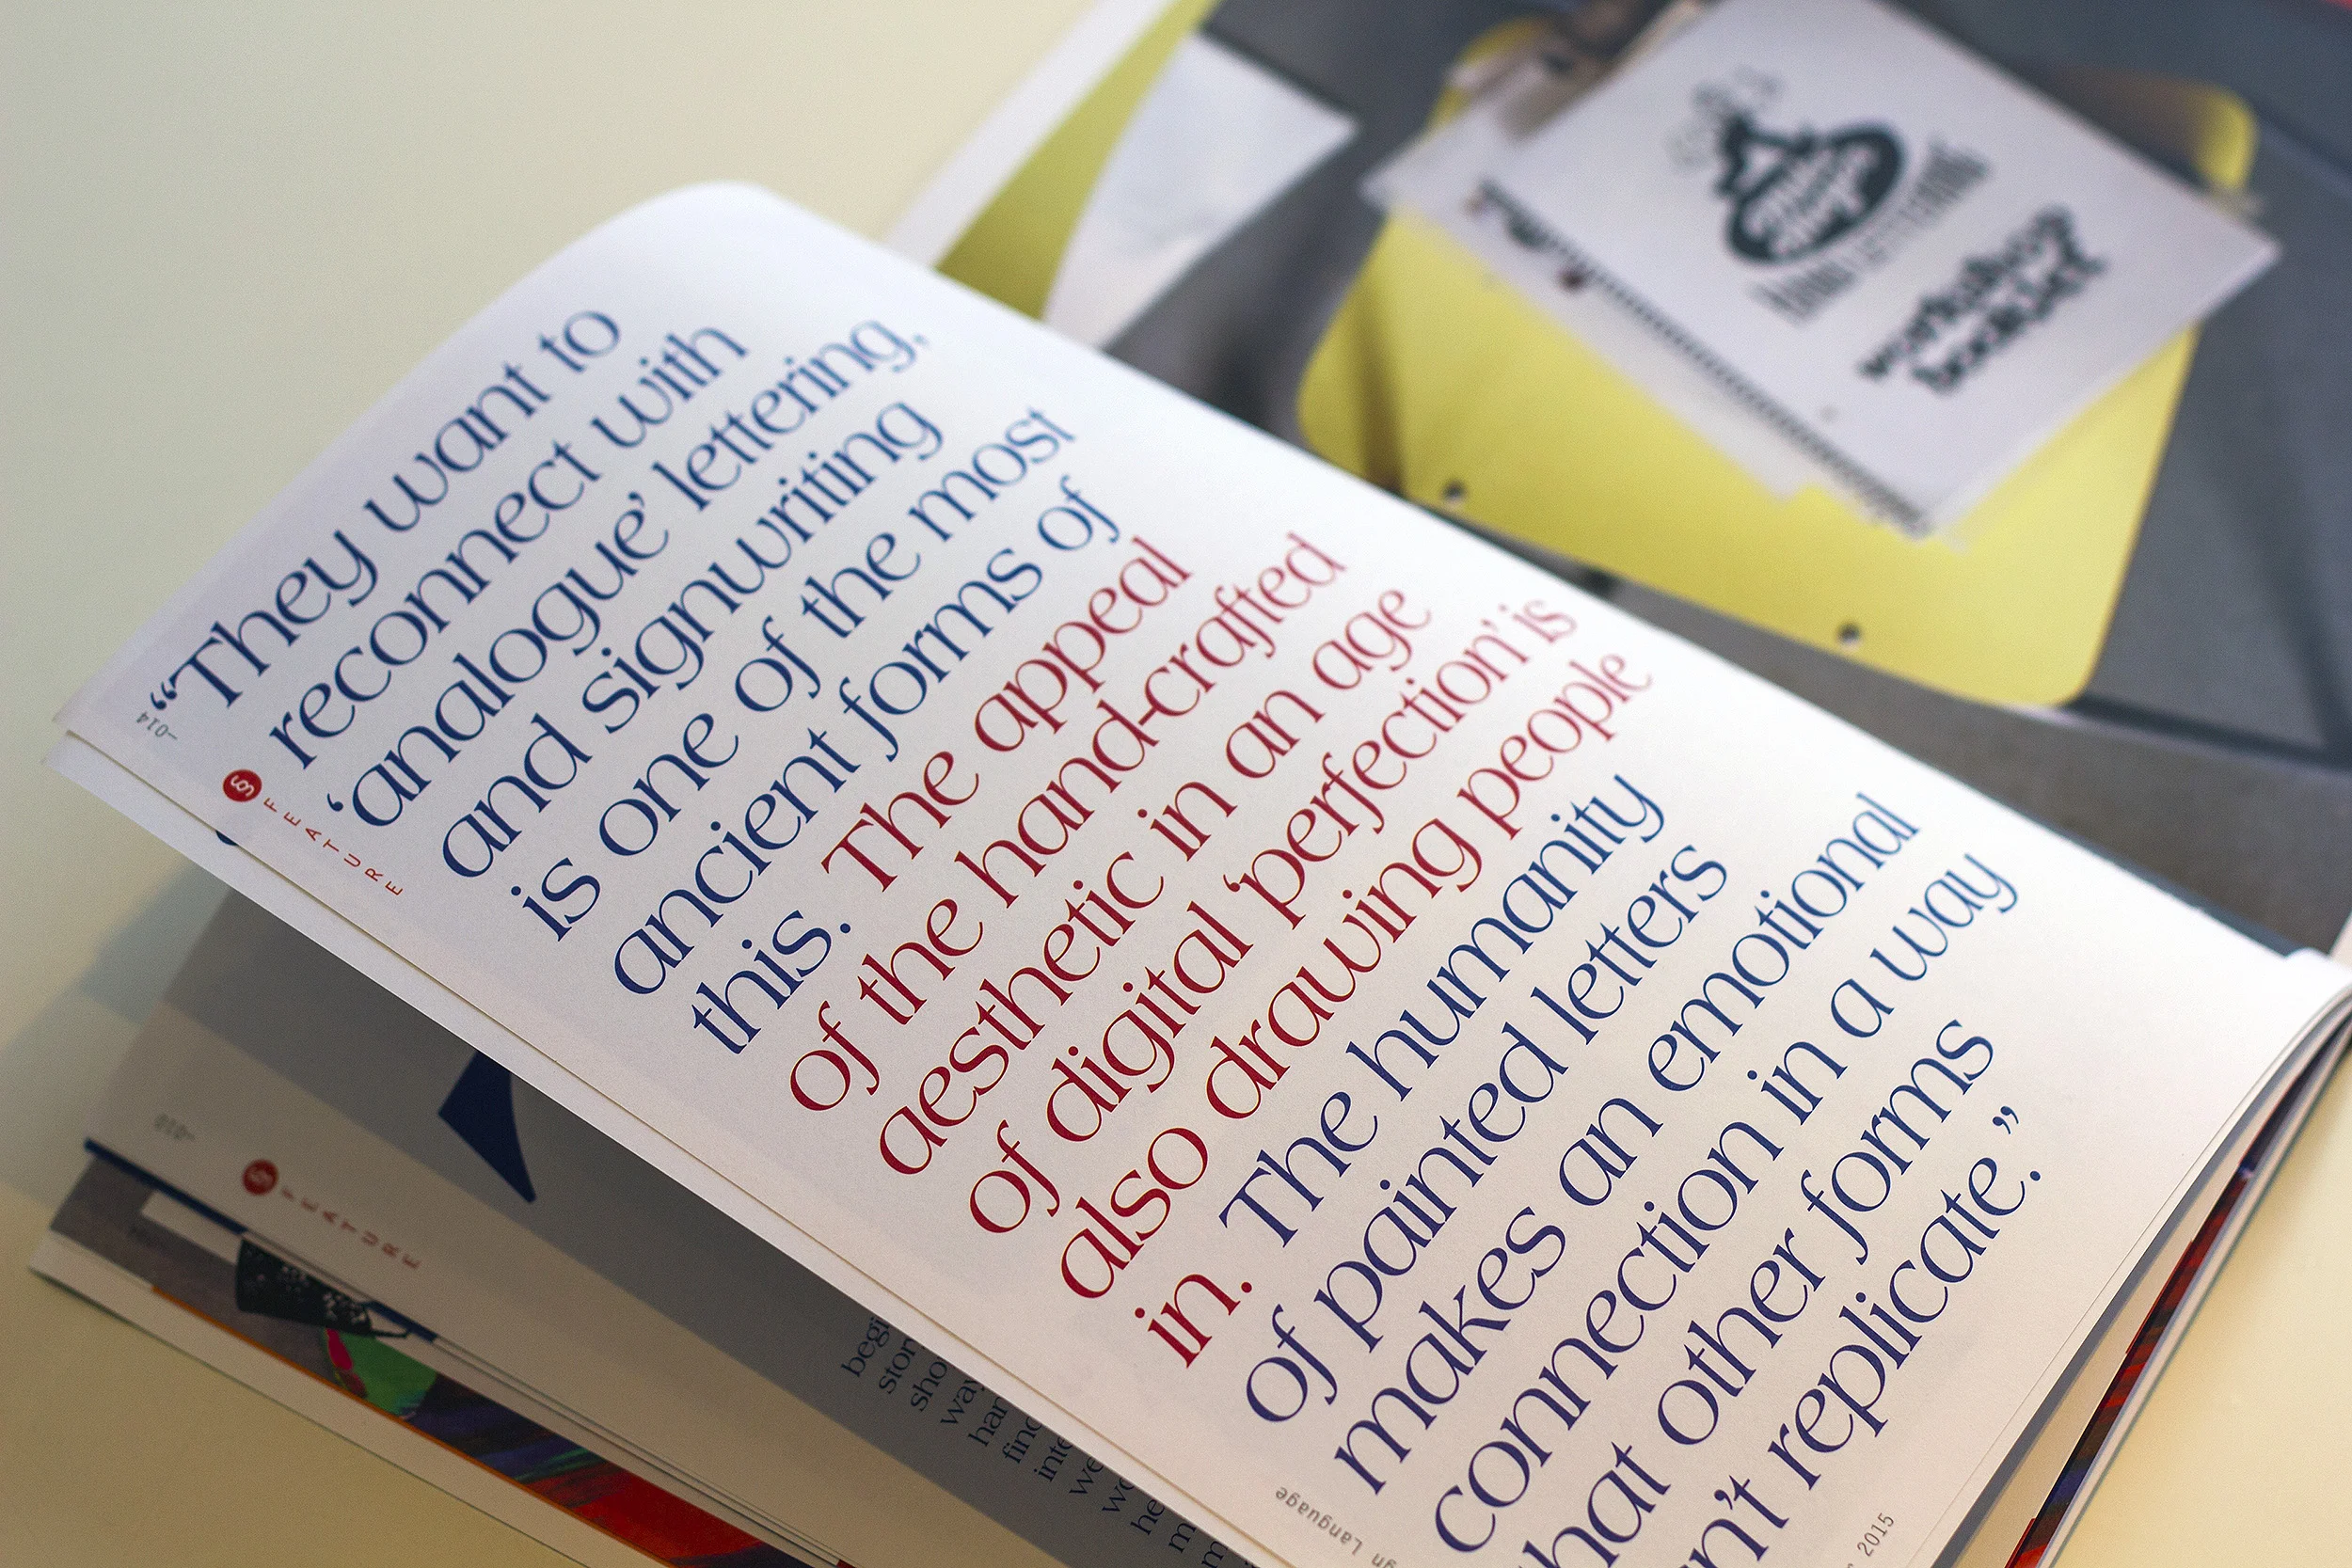 “They want to
reconnect with
‘analogue’ lettering,
and signwriting
is one of the most
ancient forms of
this. The appeal
of the hand-crafted
aesthetic in an age
of digital ‘perfection’ is
also drawing people
in. The humanity
of painted letters
makes an emotional
connection in a way
hat other forms
n’t replicate.”
—014
§ FEATURE
gn Language
2015
§ FEATURE
begi
stor
sho
way
han
find
inte
we
wo
he
m
workshop
booklet